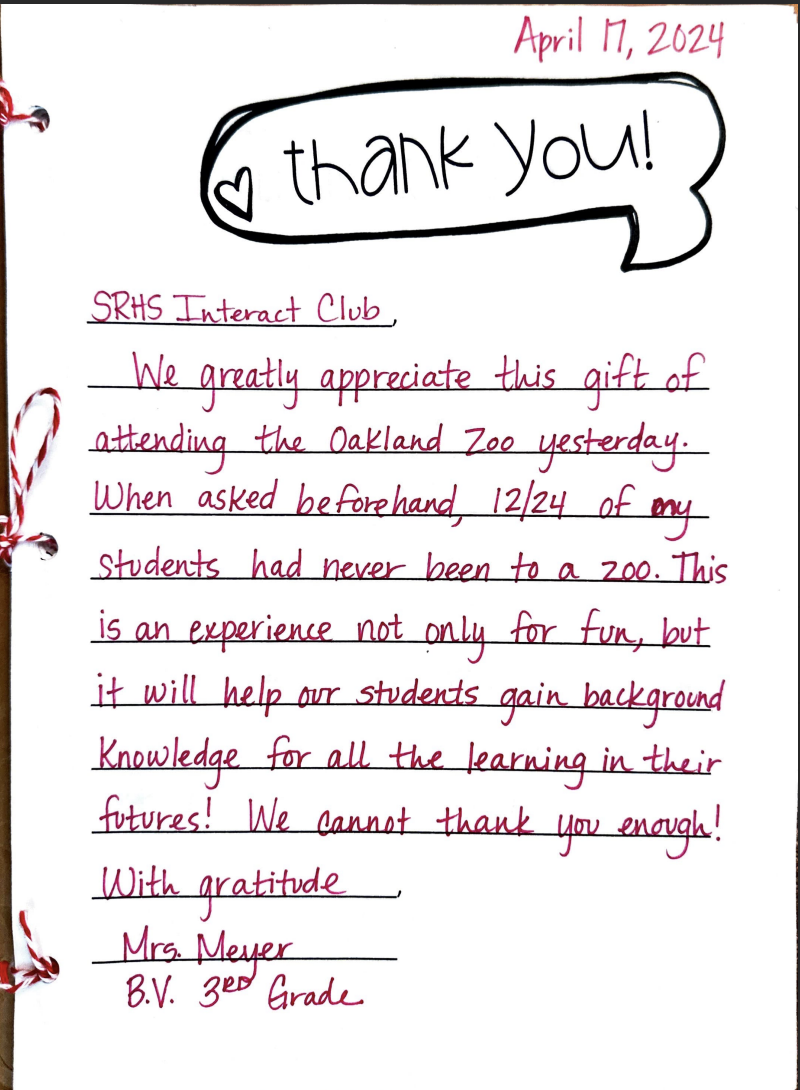 April 17, 2024
thank you!
SRHS Interact Club,
We greatly appreciate this gift of
attending the Oakland Zoo yesterday.
When asked beforehand, 12/24 of my
students had never been to a zoo. This
is an experience not only for fun, but
it will help our students gain background
knowledge for all the learning in their
futures! We cannot thank you enough!
With gratitude,
Mrs. Meyer
B.V. 3RD Grade